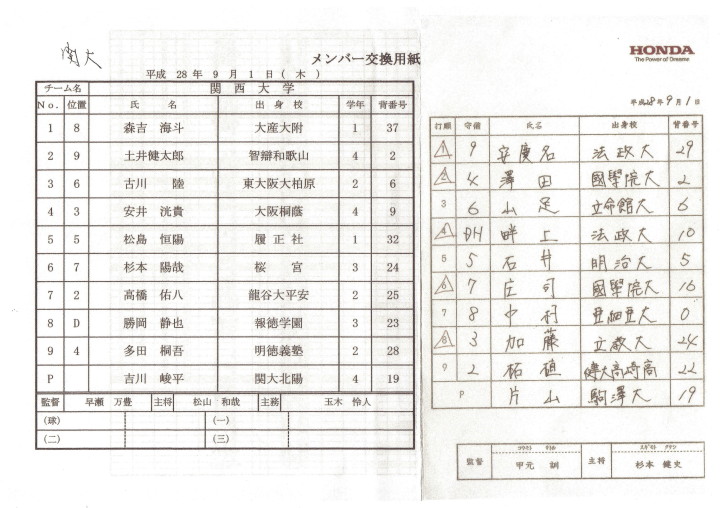 関大
メンバー交換用紙
平成 28 年 9 月 1 日 ( 木 )
チーム名 関 西 大 学
No. 位置 氏 名 出 身 校 学年 背番号
1 8 森吉 海斗 大産大附 1 37
2 9 土井健太郎 智辯和歌山 4 2
3 6 古川 陸 東大阪大柏原 2 6
4 3 安井 洸貴 大阪桐蔭 4 9
5 5 松島 恒陽 履 正 社 1 32
6 7 杉本 陽哉 桜 宮 3 24
7 2 高橋 佑八 龍谷大平安 2 25
8 D 勝岡 静也 報徳学園 3 23
9 4 多田 桐吾 明徳義塾 2 28
P 吉川 峻平 関大北陽 4 19
監督 早瀬 万豊 主将 松山 和哉 主務 玉木 怜人
(球) (一)
(二) (三)
HONDA
The Power of Dreams
平成28年9月1日
打順 守備 氏名 出身校 背番号
1 9 安慶名 法政大 29
2 4 澤田 國學院大 2
3 6 山足 立命館大 6
4 DH 畔上 法政大 10
5 5 石井 明治大 5
6 7 庄司 國學院大 16
7 8 中村 亜細亜大 0
8 3 加藤 立教大 24
9 2 柘植 健大高崎高 22
P 片山 駒澤大 19
監督 甲元 訓 主将 杉本 健史